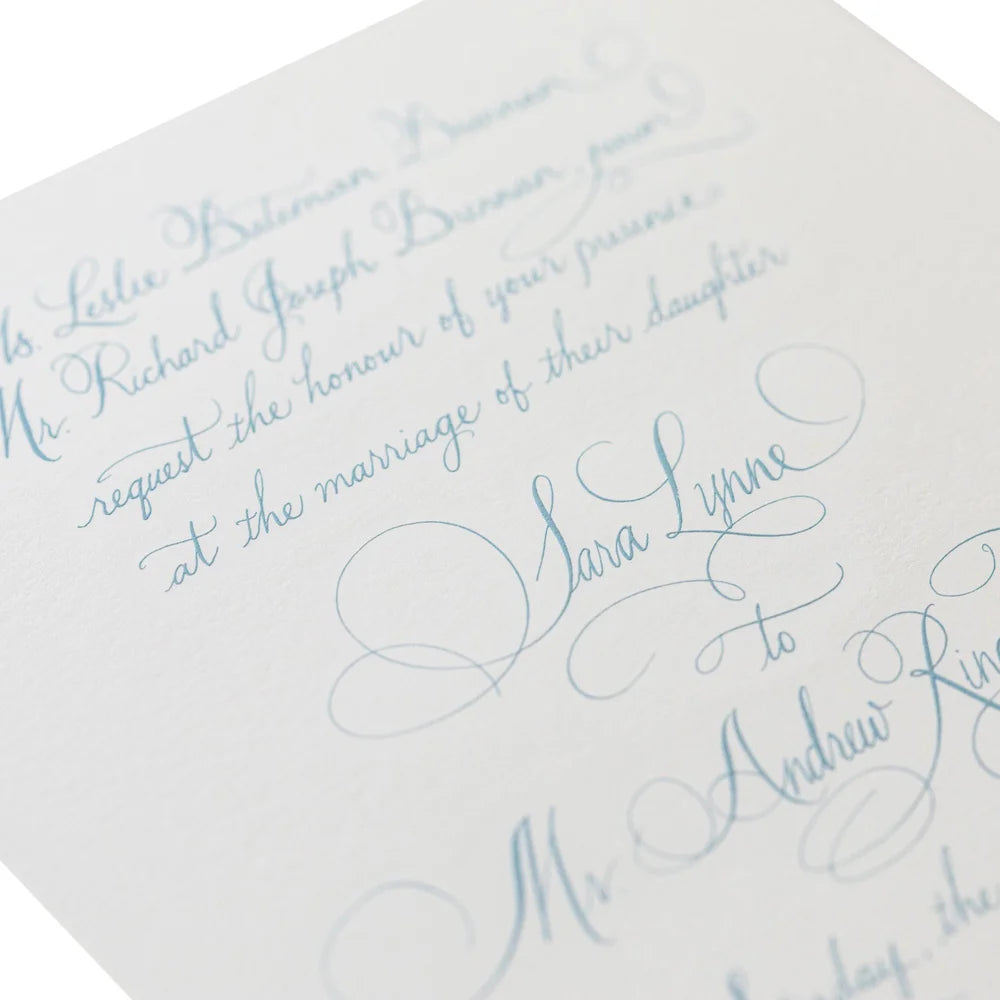 Ms. Leslie Bateman Brennan
Mr. Richard Joseph Brennan, junior
request the honour of your presence
at the marriage of their daughter
Sara Lynne
to
Mr. Andrew
the